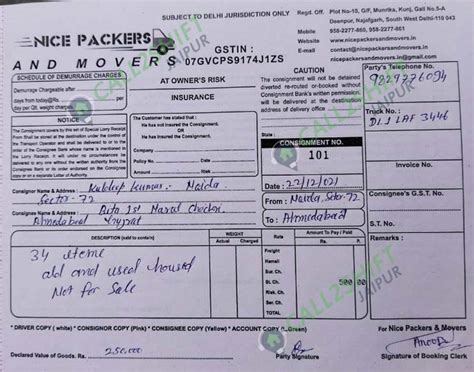 SUBJECT TO DELHI JURISDICTION ONLY
Regd. Off. Plot No-15, G/F, Munrika, Kunj, Gali No.5-A
Deenpur, Najafgarh, South West Delhi-110 043
Mobile : 958-2277-860, 958-2277-861
Email : contact@nicepackersandmovers.in
nicepackersandmovers@gmail.com
Website : www.nicepackersandmovers.in
NICE PACKERS
AND MOVERS
GSTIN :
07GVCPS9174J1ZS
SCHEDULE OF DEMURRAGE CHARGES
Demurrage Chargeable after
days from today@Rs. per
day per Qtl. weight charged
NOTICE
The Consignment covers by this set of Special Lorry Receipt
Form Shall be stored at the destination under the control of
the Transport Operator and shall be delivered to or to the
order of the Consignee Bank whose name is mentioned in the
Lorry Receipt. It will under no circumstances delivered to
any one without the written authority from the
Consignee Bank or its order endorsed on the Consignee
copy or on a separate Letter of Authority
AT OWNER'S RISK
INSURANCE
The Customer has stated that :
He has not Insured the Consignment.
Or
He has Insured the Consignment.
Company
Policy No. Date
Amount Risk
CAUTION
The Consignment will not be detained
diverted re-routed or booked without
Consignment Bank's written permission.
will be delivered at the destination
address of delivery office
Party's Telephone No.
Truck No.:
DL1 LAF 3446
CONSIGNMENT NO.
101
Invoice No.
Consignor Name & Address Kuldeep Kumar. Noida
Sector-72
Date 22/12/021
From Noida, Sector-72
Consignee's G.S.T. No.
Consignee Name & Address
Ahmedabad
To Ahmedabad
DESCRIPTION (said to contain)
WEIGHT
Actual
Charged
Amount To Pay / Paid
Rs.
P.
Remarks :
34 items
old and used
Not for Sale
Freight
Hamali
Sur. Ch.
St. Ch.
BL Ch.
500 00
Risk. Ch.
Service
TOTAL
* DRIVER COPY ( white) * CONSIGNOR COPY (Pink) * CONSIGNEE COPY (Yellow) * ACCOUNT COPY (L.Green)
For Nice Packers & Movers
Declared Value of Goods. Rs. 250,000
Party Signature
Signature of Booking Clerk
CALL2SHIFT
JAIPUR
CALL2SHIFT
JAIPUR
CALL2SHIFT
JAIPUR